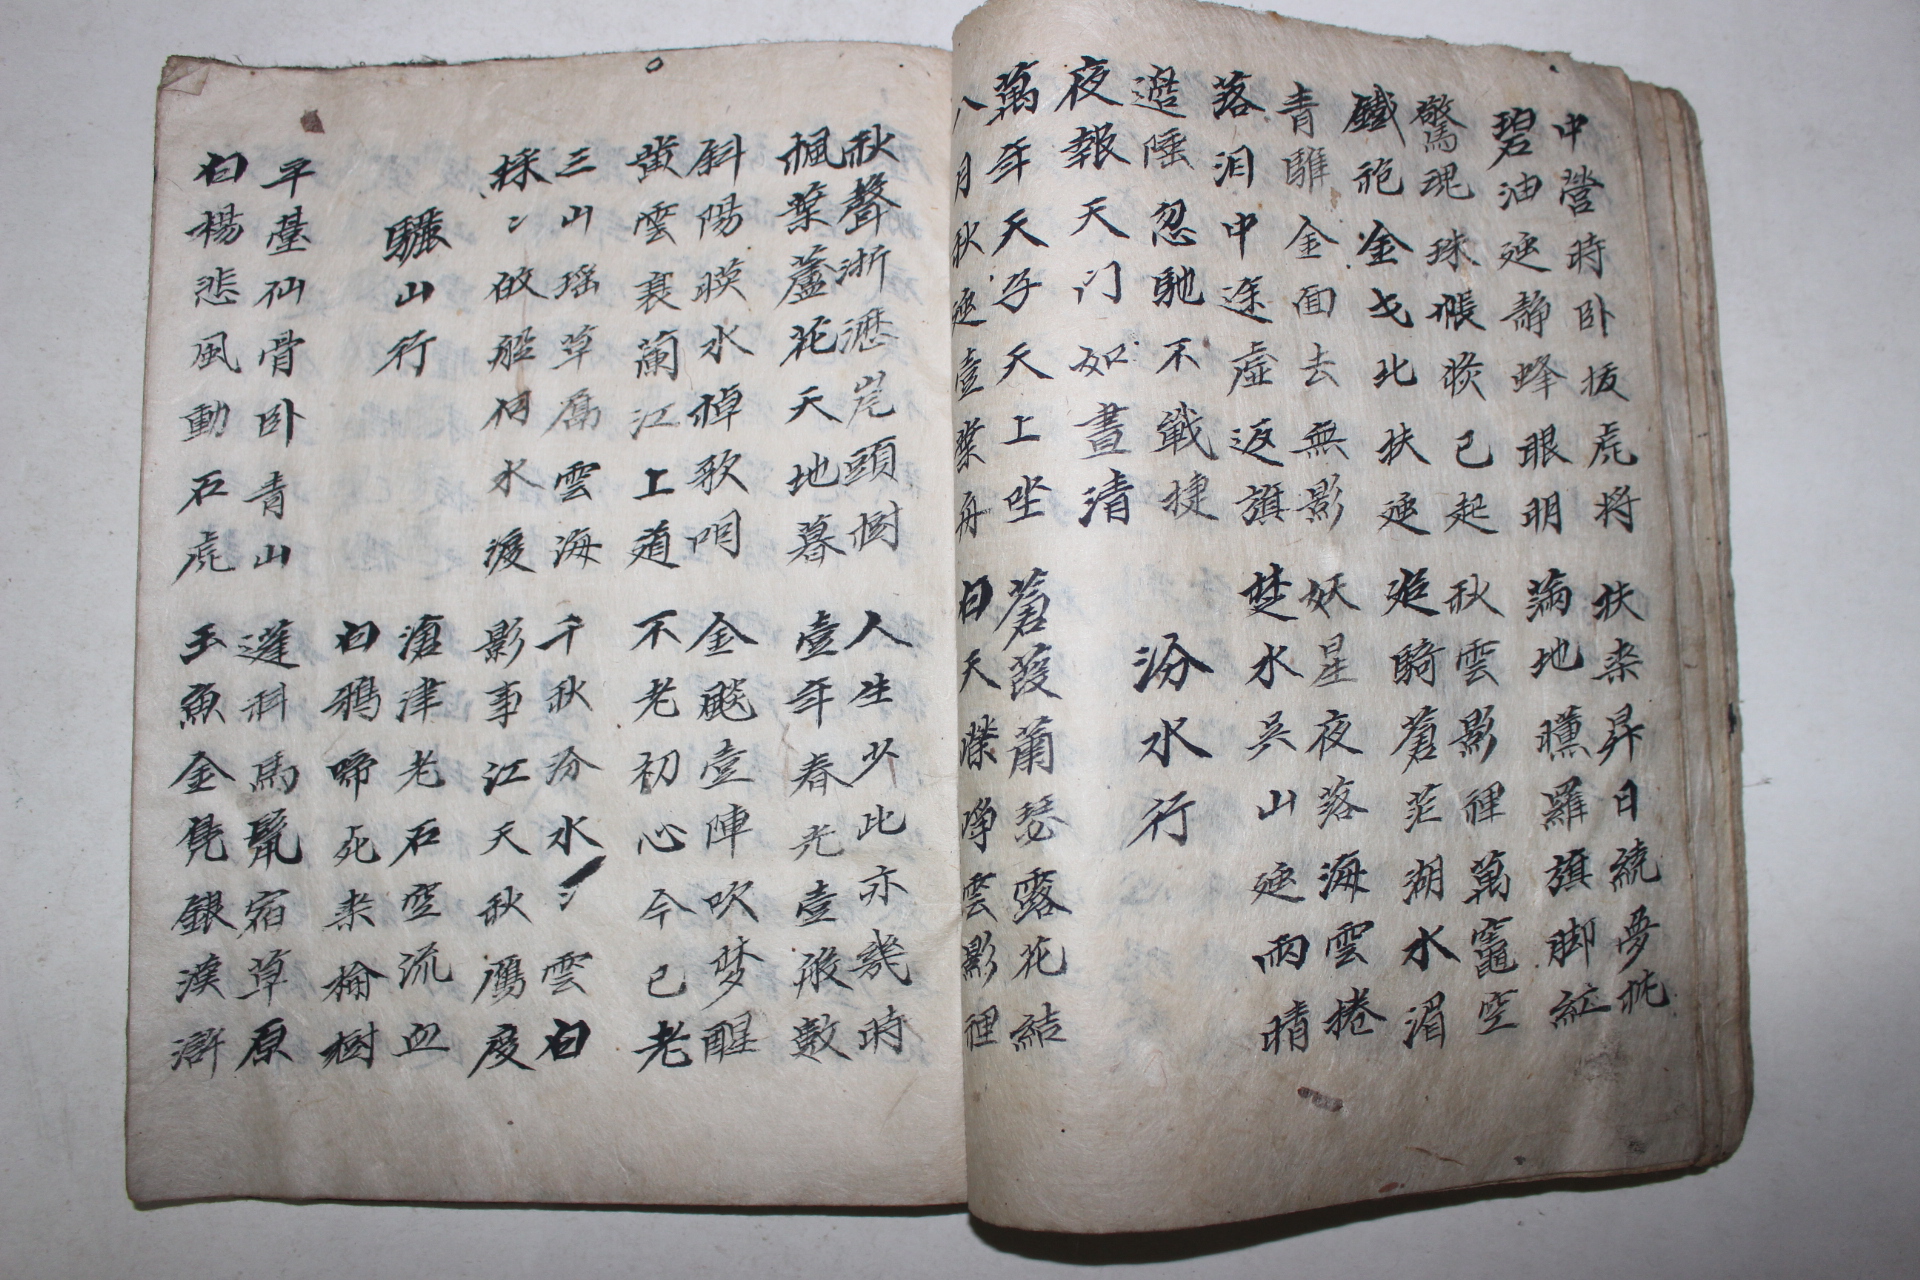 中營時卧扳虎將 扶桑昇日繞夢旄
碧油延静蜂眼明 滿地曛羅旗脚紅
驚魂珠帳㷀已起 秋雲影裡萬竈空
鐵袍金戈北扶延 追騎蒼茫湖水湄
青騅金面去無影 妖星夜落海雲捲
落泪中途虛返旗 楚水吳山延雨晴
遊陲忽馳不戰捷
夜報天门如晝清
汾水行
萬年天子天上坐 蒼葭蘭瑟露花結
八月秋延壹葉舟 白天濼崢雲影裡
秋聲淅瀝岸頭樹 人生少此亦幾時
楓葉蘆花天地暮 壹年春光壹般數
斜陽暎水棹歌咽 金颷壹陣吹梦醒
黄雲衰蘭江上道 不老初心今已老
三山瑤草属雲海 千秋汾水〻雲白
採〻故船何水渡 影事江天秋厲度
驪山行
滄津老石空流血
白鴉啼死来楡樹
平臺仙骨卧青山 蓬科馬鬣宿草原
白楊悲風動石虎 玉魚金凫銀漢滸